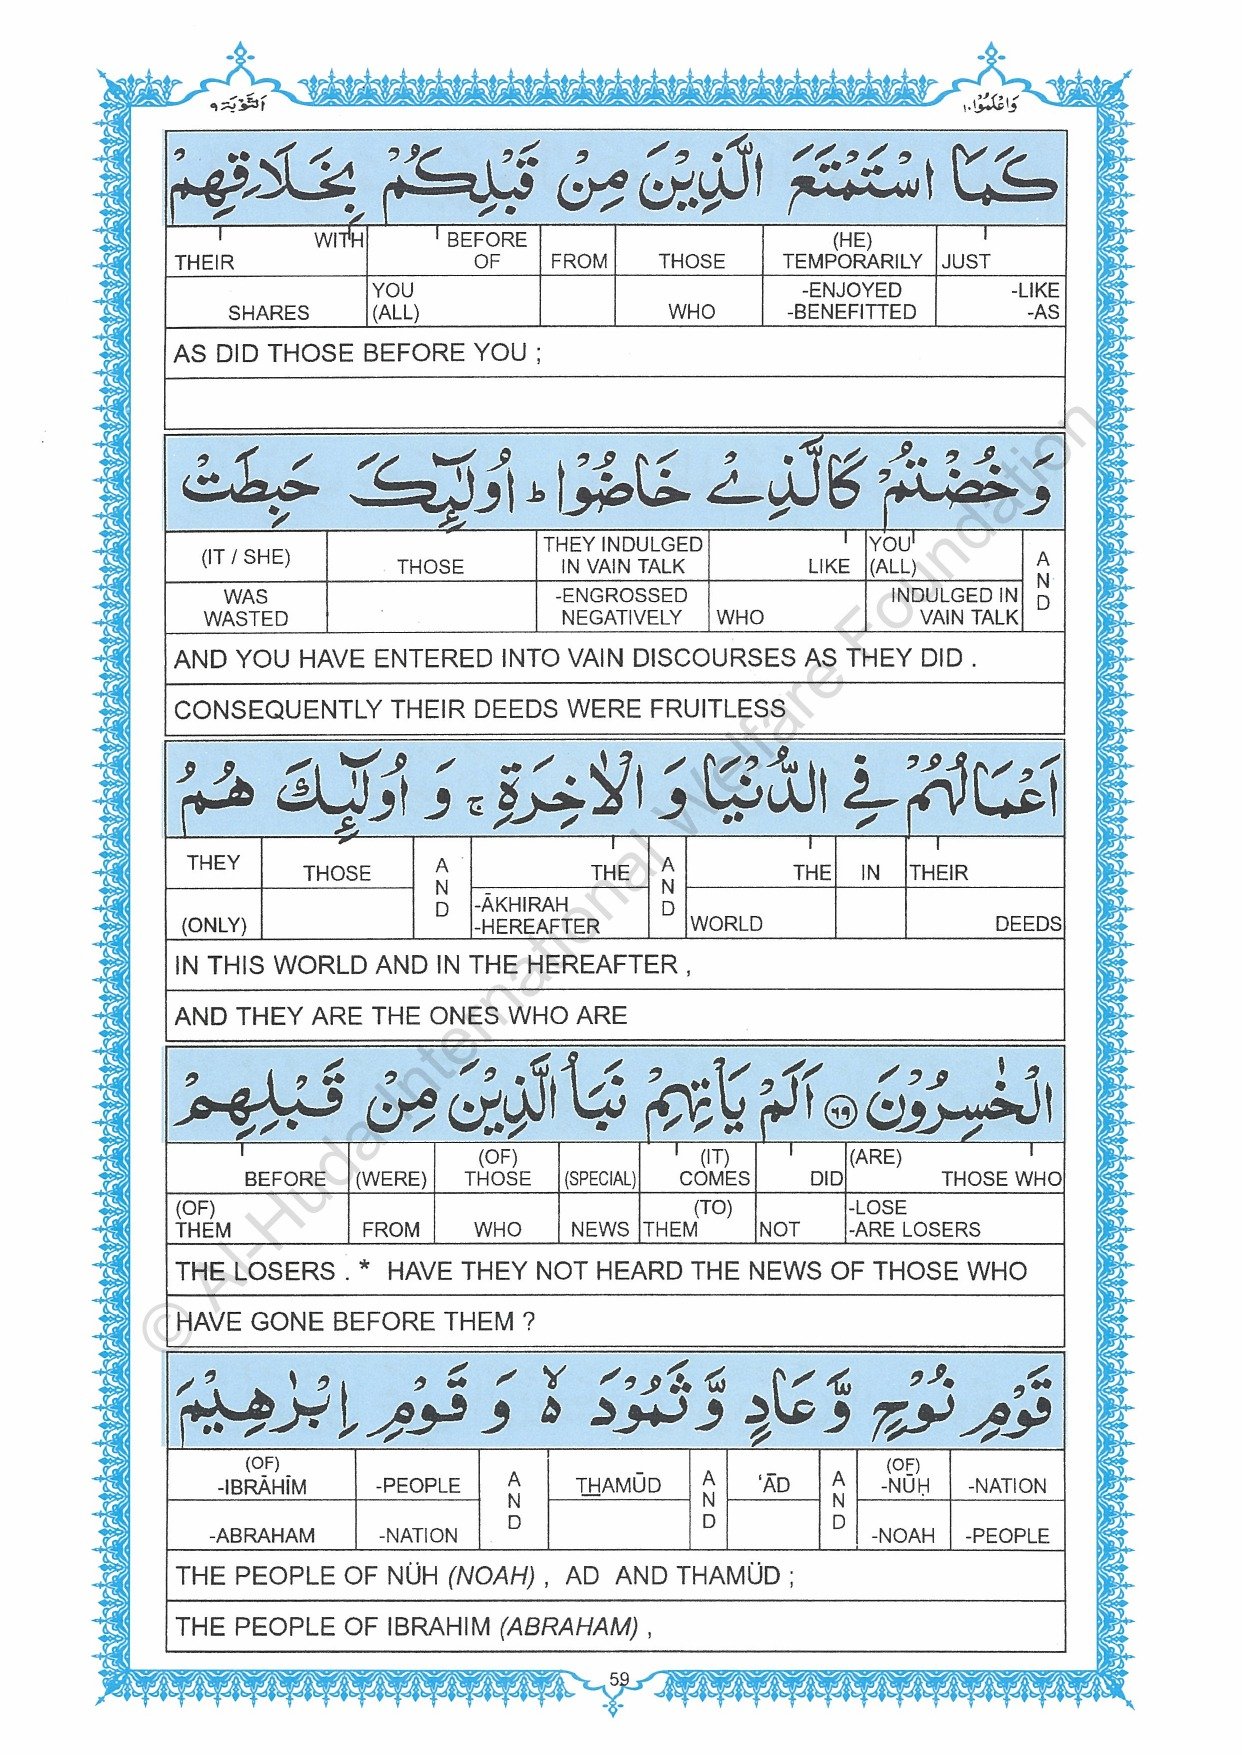 اَلتَّوْبَة ٩
وَاعْلَمُوْا ١٠
كَمَا اسْتَمْتَعَ الَّذِيْنَ مِنْ قَبْلِكُمْ بِخَلَاقِهِمْ
WITH BEFORE (HE)
THEIR OF FROM THOSE TEMPORARILY JUST
YOU -ENJOYED -LIKE
SHARES (ALL) WHO -BENEFITTED -AS
AS DID THOSE BEFORE YOU ;
وَ خُضْتُمْ كَالَّذِيْ خَاضُوْا ؕ اُولٰٓئِكَ حَبِطَتْ
(IT / SHE) THOSE THEY INDULGED IN VAIN TALK LIKE YOU (ALL) AND
WAS WASTED -ENGROSSED NEGATIVELY WHO INDULGED IN VAIN TALK
AND YOU HAVE ENTERED INTO VAIN DISCOURSES AS THEY DID .
CONSEQUENTLY THEIR DEEDS WERE FRUITLESS
اَعْمَالُهُمْ فِي الدُّنْيَا وَ الْاٰخِرَةِ ۚ وَ اُولٰٓئِكَ هُمُ
THEY THOSE AND THE AND THE IN THEIR
(ONLY) -ĀKHIRAH -HEREAFTER WORLD DEEDS
IN THIS WORLD AND IN THE HEREAFTER ,
AND THEY ARE THE ONES WHO ARE
الْخٰسِرُوْنَ ٦٩ اَلَمْ يَاْتِهِمْ نَبَاُ الَّذِيْنَ مِنْ قَبْلِهِمْ
BEFORE (WERE) (OF) THOSE (SPECIAL) (IT) COMES DID (ARE) THOSE WHO
(OF) THEM FROM WHO NEWS (TO) THEM NOT -LOSE -ARE LOSERS
THE LOSERS . * HAVE THEY NOT HEARD THE NEWS OF THOSE WHO
HAVE GONE BEFORE THEM ?
قَوْمِ نُوْحٍ وَّ عَادٍ وَّ ثَمُوْدَ ۙ۬ وَ قَوْمِ اِبْرٰهِيْمَ
(OF) -IBRĀHĪM -PEOPLE AND THAMŪD AND ‘ĀD AND (OF) -NŪḤ -NATION
-ABRAHAM -NATION -NOAH -PEOPLE
THE PEOPLE OF NÜH (NOAH) , AD AND THAMÜD ;
THE PEOPLE OF IBRAHIM (ABRAHAM) ,
59
© Al-Huda International Welfare Foundation